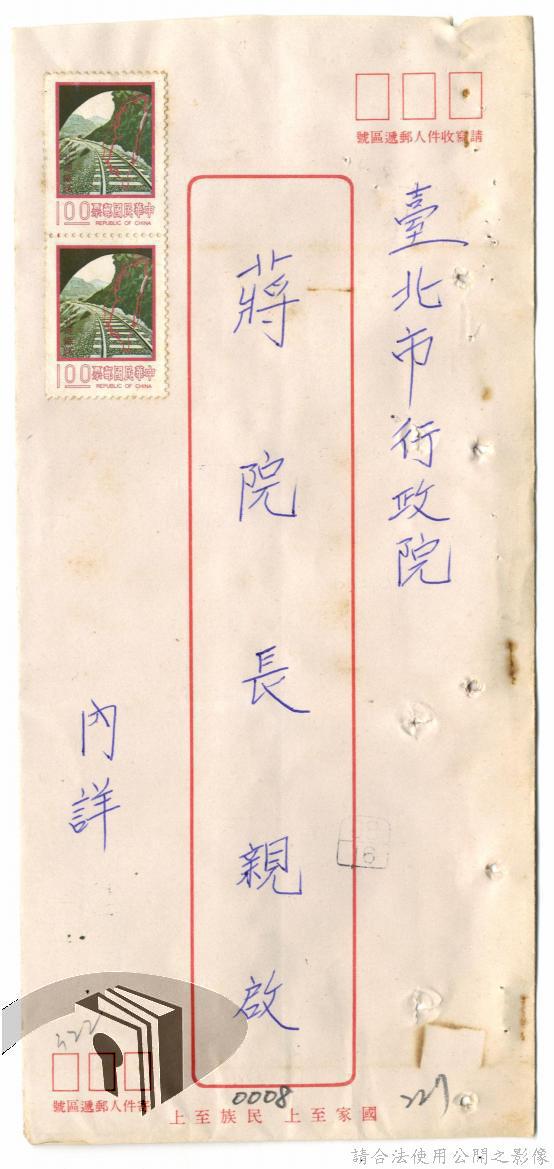 請寫收件人郵遞區號
臺北市行政院
蔣院長親啟
內詳
中華民國郵票
REPUBLIC OF CHINA
1.00
中華民國郵票
REPUBLIC OF CHINA
1.00
16
322
寄件人郵遞區號
0008
國家至上 民族至上
227
請合法使用公開之影像